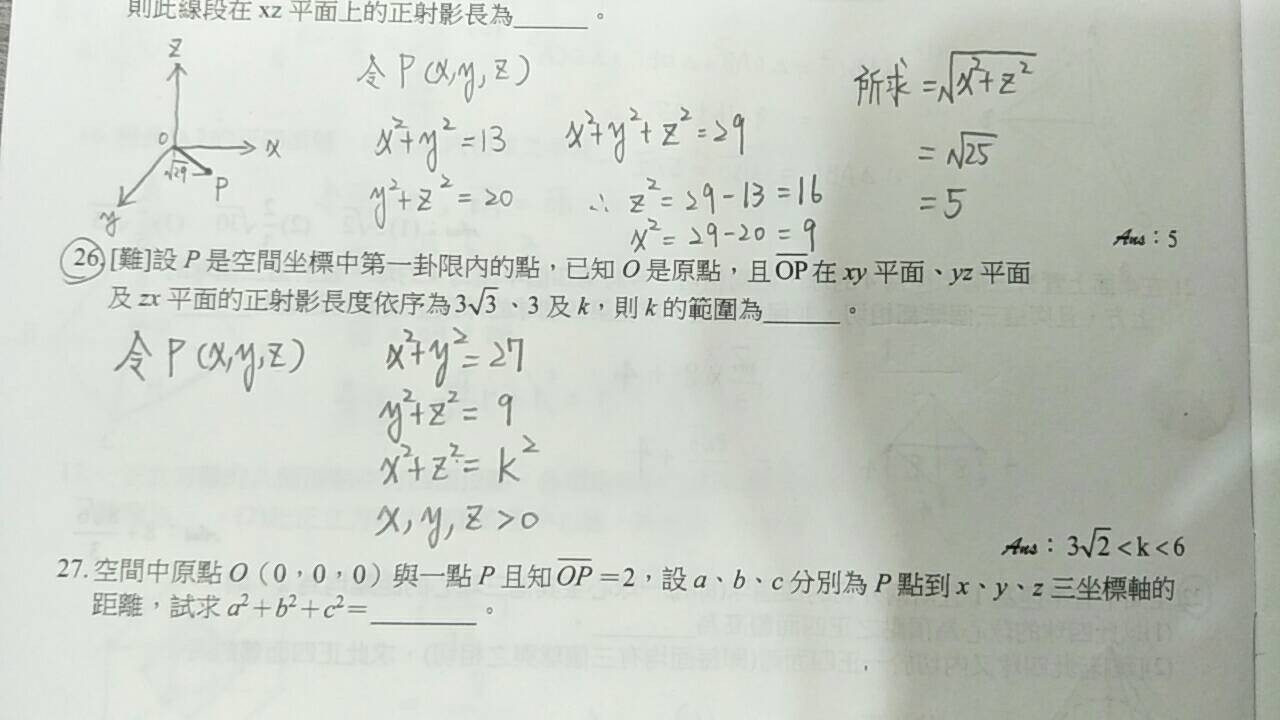 則此線段在 xz 平面上的正射影長為______。
z
O
x
√29
P
y
令 P(x,y,z)
x²+y²=13
y²+z²=20
x²+y²+z²=29
∴ z²=29-13=16
x²=29-20=9
所求=√x²+z²
=√25
=5
Ans：5
26. [難]設 P 是空間坐標中第一卦限內的點，已知 O 是原點，且 OP 在 xy 平面、yz 平面
及 zx 平面的正射影長度依序為 3√3、3 及 k，則 k 的範圍為______。
令 P(x,y,z)
x²+y²=27
y²+z²=9
x²+z²=k²
x,y,z>0
Ans：3√2<k<6
27. 空間中原點 O（0，0，0）與一點 P 且知 OP=2，設 a、b、c 分別為 P 點到 x、y、z 三坐標軸的
距離，試求 a²+b²+c²=________。